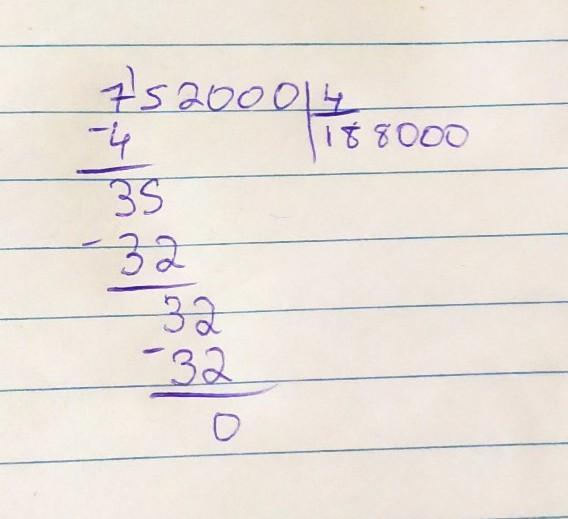 752000 4
-4 188000
35
-32
32
-32
0